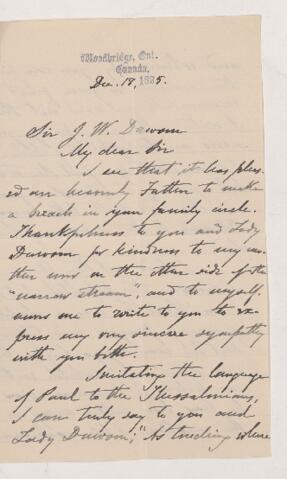 Woodbridge, Ont.
Canada,
Dec. 18, 1885.
Sir J. W. Dawson
My dear Sir
I see that it has pleas-
ed our heavenly Father to make
a breach in your family circle.
Thankfulness to you and Lady
Dawson for kindness to my
now on the other side of the
"narrow stream", and to myself,
moves me to write to you to ex-
press my very sincere sympathy
with you both.
Imitating the language
of Paul to the Thessalonians,
I can truly say to you and
Lady Dawson; "As touching